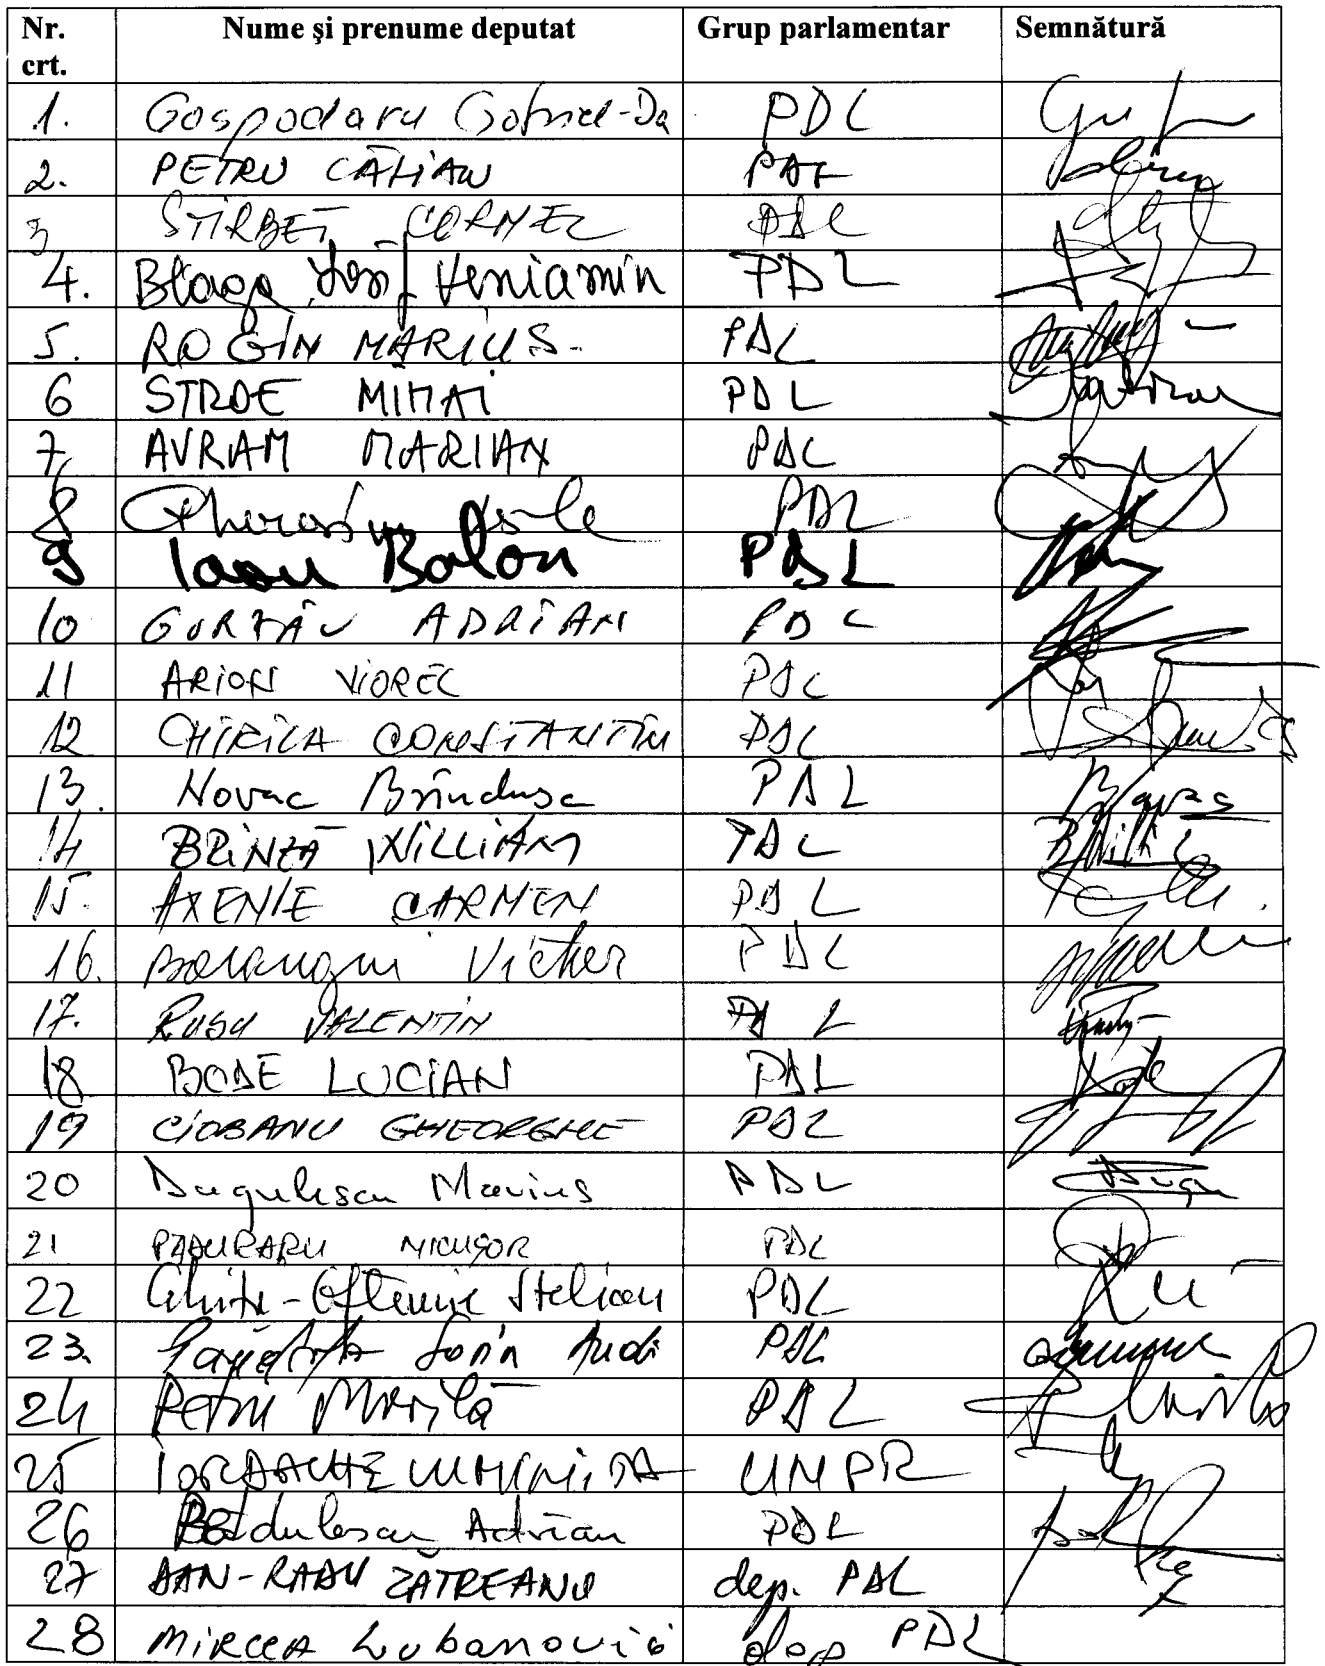 Nr. crt. Nume şi prenume deputat Grup parlamentar Semnătură
1. Gospodaru Gabriel-Da PDL
2. PETRU CĂLIAN PDL
3 STIRBEȚ CORNEL PDL
4. Blaga Iosif Veniamin PDL
5. ROGIN MARIUS. PDL
6 STROE MIHAI PDL
7. AVRAM MARIAN PDL
8 Gherasim Vasile PDL
9 Ioan Balan PDL
10 GURZĂU ADRIAN PDL
11 ARION VIOREL PDL
12 CHIRILA CONSTANTIN PDL
13. Novac Brîndușa PDL
14 BRÎNZĂ WILLIAM PDL
15. AXENIE CARMEN PDL
16. PDL
17. RUSU VALENTIN PDL
18 BODE LUCIAN PDL
19 CIOBANU GHEORGHE PDL
20 Dugulescu Marius PDL
21 PĂDURARU NICUȘOR PDL
22 Ghiță-Eftemie Stelian PDL
23. Sorin Andi PDL
24 Petru Movilă PDL
25 IORDACHE LUMINIȚA UNPR
26 Bădulescu Adrian PDL
27 DAN-RADU ZĂTREANU dep. PDL
28 MIRCEA Lubanovici dep PDL